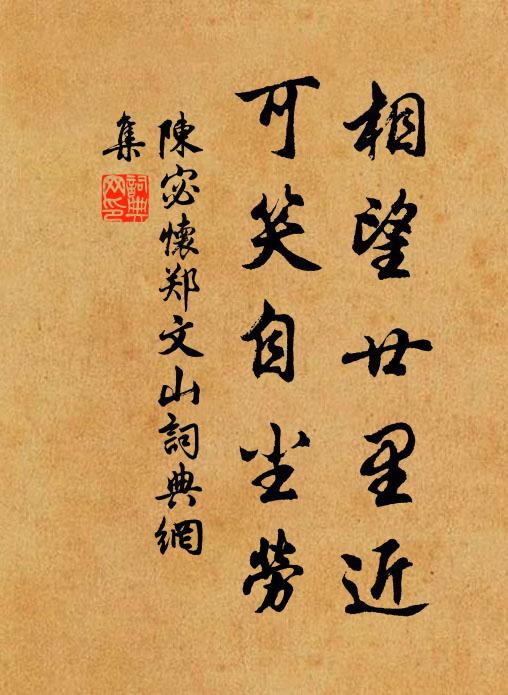 相望廿里近
可笑自尘劳
陳宓懷郑文山詞典網
集
詞典网印